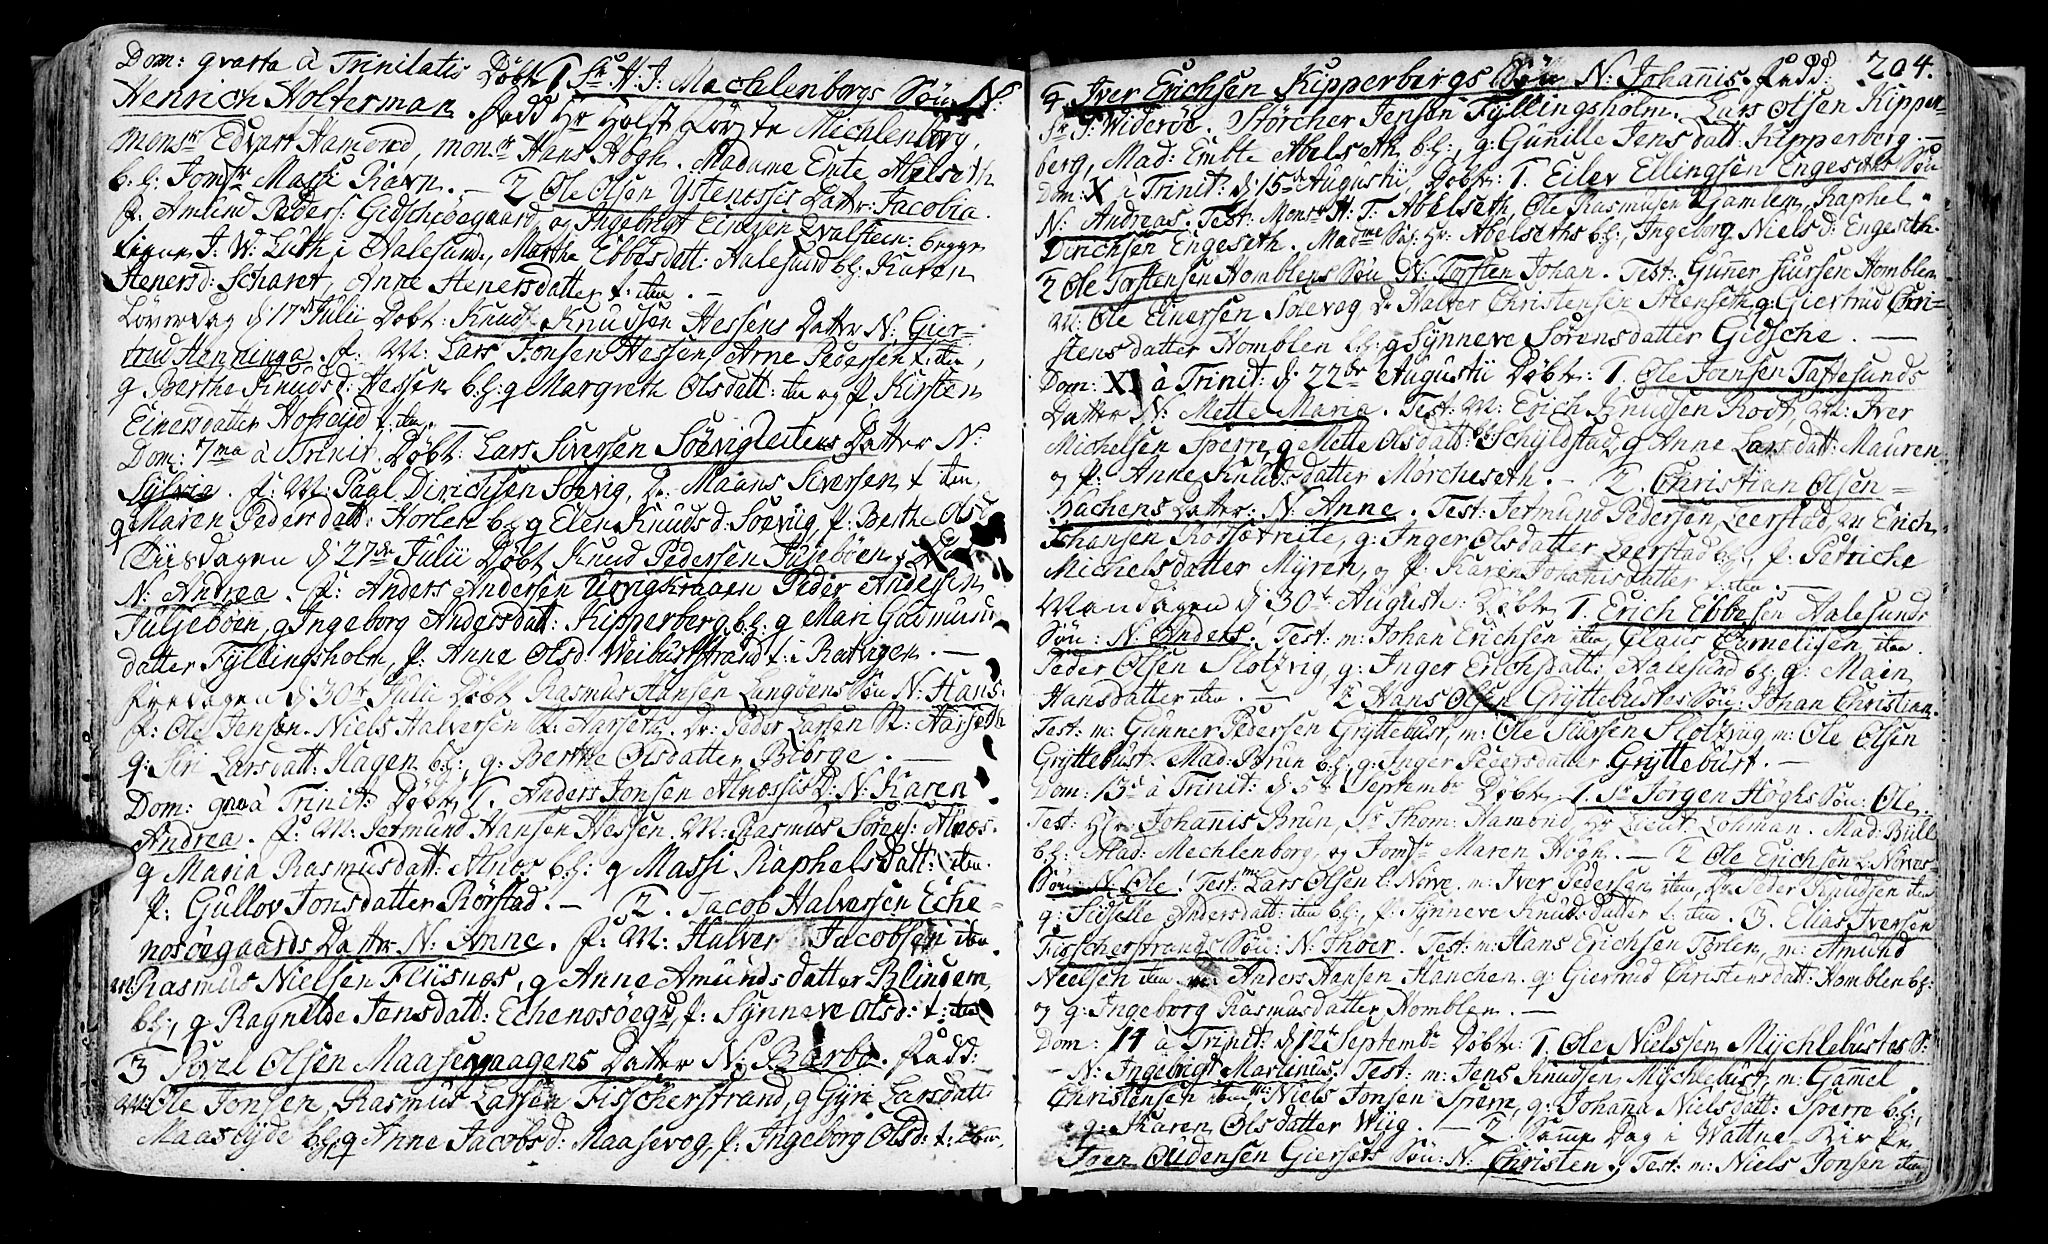 Dom: qvarta à Trinitatis Döbt 1 Sr H. J: Mechlenborgs Sön N:
Henrich Holterman. Fadd Hr Holst Mechlenborg,
Monsr Edvart Hamond, monsr Hans Högh. Madame Emte Abelseth
b. h: Jomfr Massi Ravn. — 2 Ole Olsen Ystenosses Datter: Jacobia.
f: Amund Peders: Gidschöegaard, og Ingebrigt Einersen Qvalsteen: begge
J. W: Luth i Aalesund, Marthe Ebbesdatt: Aalesund b: h: Karen
Stenersd: Scharet, Anne Stenersdatter t: iten. —
Löverdag d 17de Julii Döbt: Knud Knudsen Hessens Datter N: Gier-
trud Henninga. f: M: Lars Jonsen Hessen, Arne Pedersen t: iten,
q Berthe Knudsd: Hessen b:h: q Margreth Olsdatt: iten og f: Kirsten
Einersdatter Hopseid t: iten. —
Dom: 7ma à Trinit: Döbt: Lars Siversen Söevigleitens Datter N:
Sylvea. f: M: Paal Dirichsen Söevig, Dr: Maans Siversen t iten,
q Maren Pedersdatt: Horlen b:h q Elen Knudsd: Söeviig, f: Berthe Olsd
Tiisdagen d 27de Julii Döbt Knud Pedersen Juljeböens
N: Andrea. f: Anders Andersen Peder Andersen
Juljeböen, q Ingeborg Andersdatt: Kipperberg b.h: q Mari Gudmunds
datter Fyllingsholm, f: Anne Olsd: Weibustsrand t: i Ratvigen. —
Fredagen d 30te Julii Döbt Rasmus Hansen Langöens Sön N: Hans.
f: Ole Jensen. Niels Halversen Aarseth, Dr: Peder Larsen Aarseth
q: Siri Larsdatt: Hagen b:h:, q: Berthe Olsdatter Biörge. —
Dom: 9na à Trinit: Döbt 1. Anders Jonsen Alnossis D: N: Karen
Andrea. f: M: Jetmund Hansen Hessen. M: Rasmus Sörens: Alnæs.
q Maria Rasmusdatt: Alnæs b:h: q Massi Raphelsdatt: iten.
f: Gullov Jonsdatter Rörstad. — 2. Jacob Halversen Eche-
nosöegaards Datter N: Anne. f: M: Halver Jacobsen iten
m: Rasmus Nielsen Fliisnæs, q Anne Amundsdatter Blindem
b:h:, q Ragnilde Jensdatt: Echenosöegrd, f: Synneve Olsd: t: iten
3 Povel Olsen Maasevaagens Datter N: Barbo. Fadd:
m: Ole Jonsen, Rasmus Larsen Fisscherstrand, q Gyri Larsdatt:
Maaslyde b:h, q Anne Jacobsd: Maasevog, f: Ingeborg Olsd: t: iten.
204.
4 Iver Erichsen Kipperbergs Sön N: Johannis. Fadd:
Sr J: Wideröe. Störcher Jensen Fyllingsholm. Lars Olsen Kipper-
berg, Mad: Embte Abelseth b.h:, q: Gunille Jensdatt: Kipperberg. —
Dom: X à Trinit: d 15de Augustii, Döbt: 1. Eilev Ellingsen Engeseths Sön
N: Andreas. Test: Monsr H: T: Abelseth, Ole Rasmusen Gamlem, Raphel
Dirichsen Engeseth. Madme Sal: Hr: Abelseths b:h:, Ingeborg Nielsd: Engeseth.
2 Ole Torstensen Homblens Sön N: Torsten Johan. Test: Gunner Siursen Homblen
M: Ole Einersen Solevog, Dr: Halver Christensen Stenseth, q: Giertrud Chri-
stensdatter Homblen b:h: q Synneve Sörensdatter Gidsche. —
Dom: XI à Trinit: d 22de Augustii Döbt: 1. Ole Joensen Taftesunds
Datter N: Mette Maria. Test: M: Erich Knudsen Root, M: Iver
Michelsen Sperre, q Mette Olsdatt: Schyldstad, q Anne Larsdatt: Mauren
og f: Anne Knudsdatter Morcheseth. — 2. Christian Olsen
Bachens Datter: N: Anne. Test: Jetmund Pedersen Leerstad, m Erich
Johansen Rossætreite, q: Inger Olsdatter Leerstad, f: Petriche
Michelsdatter Myren, og f: Karen Johanisdatter t: iten. —
Mandagen d 30te August: Döbt 1. Erich Ebbesen Aalesunds
Sön: N: Anders. Test: m: Johan Erichsen iten Claus Cornelisen iten.
Peder Olsen Slotzvig, q: Inger Erichsdatt: Aalesund b:h: q: Maren
Hansdatter iten. — 2 Hans Olsen Gryttebustes Sön: Johan Christian.
Test: m: Gunner Pedersen Gryttebust, m: Ole Siursen Slotzvig m: Ole Olsen
Gryttebust. Mad: Brun b:h, q: Inger Pedersdatter Gryttebust. —
Dom: 13de à Trinit: d 5te Septembr Döbt: 1. Sr Jörgen Höghs Sön: Ole.
Test: Hr: Johanis Brun, Sr Thom: Hamond, Hr Lieut: Lohman. Mad: Büll
b:h: Mad: Mechlenborg, og Jomfr Maren Högh. — 2 Ole Erichsen L: Nörves
Sön: N: Ole. Test: m: Lars Olsen L: Nörve. m: Iver Pedersen iten, Dr Peder Knudsen iten
q: Sidselle Andersdatt: iten b:h:, f: Synneve Knudsdatter t: iten. 3. Elias Iversen
Fisscherstrands Sön: N: Thoer. Test: m: Hans Erichsen Törlen, m: Amund
Neelsen iten m: Anders Hansen Hanchen. q: Giertrud Christensdatt: Homblen b:h:
og q: Ingeborg Rasmusdatter Homblen. —
Dom: 14 à Trinit: d 12te Septembr Döbt: 1. Ole Nielssen Mychlebustes S:
— N: Ingebrigt Martinus. Test: m: Jens Knudsen, Mychlebust, m: Gamel
Christensen iten m: Niels Jonsen Sperre, q: Johanna Nielsdatt: Sperre b:h:,
q: Karen Olsdatter Wiig. — 2. Samme Dag i Wattne-Kirke
Joen Oudensen Giersets Sön: N: Christen. Test: m: Niels Jonsen iten